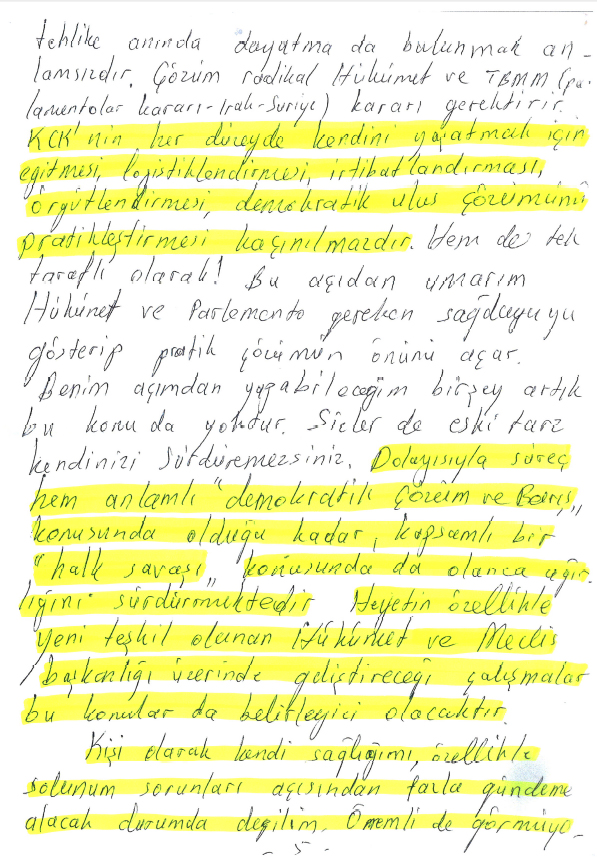 tehlike anında dayatma da bulunmak an-
lamsızdır. Çözüm radikal Hükümet ve TBMM (pa.
lamentolar kararı-Irak-Suriye) kararı gerektirir.
KCK'nin her düzeyde kendini yaşatmak için
eğitmesi, lojistiklendirmesi, irtibatlandırması,
örgütlendirmesi, demokratik ulus çözümünü
pratikleştirmesi kaçınılmazdır. Hem de tek
taraflı olarak! Bu açıdan umarım
Hükümet ve Parlemento gereken sağduyuyu
gösterip pratik çözümün önünü açar.
Benim açımdan yapabileceğim birşey artık
bu konu da yoktur. Sizler de eski tarz
kendinizi sürdüremezsiniz. Dolayısıyla süreç
hem anlamlı "demokratik çözüm ve Barış"
konusunda olduğu kadar, kapsamlı bir
"halk savaşı" konusunda da olanca ağır.
lığını sürdürmektedir Heyetin özellikle
yeni teşkil olunan Hükümet ve Meclis
başkanlığı üzerinde geliştireceği çalışmalar
bu konular da belirleyici olacaktır.
Kişi olarak kendi sağlığımı, özellikle
solunum sorunları açısından fazla gündeme
alacak durumda değilim. Önemli de görmüyo-
- 5 -